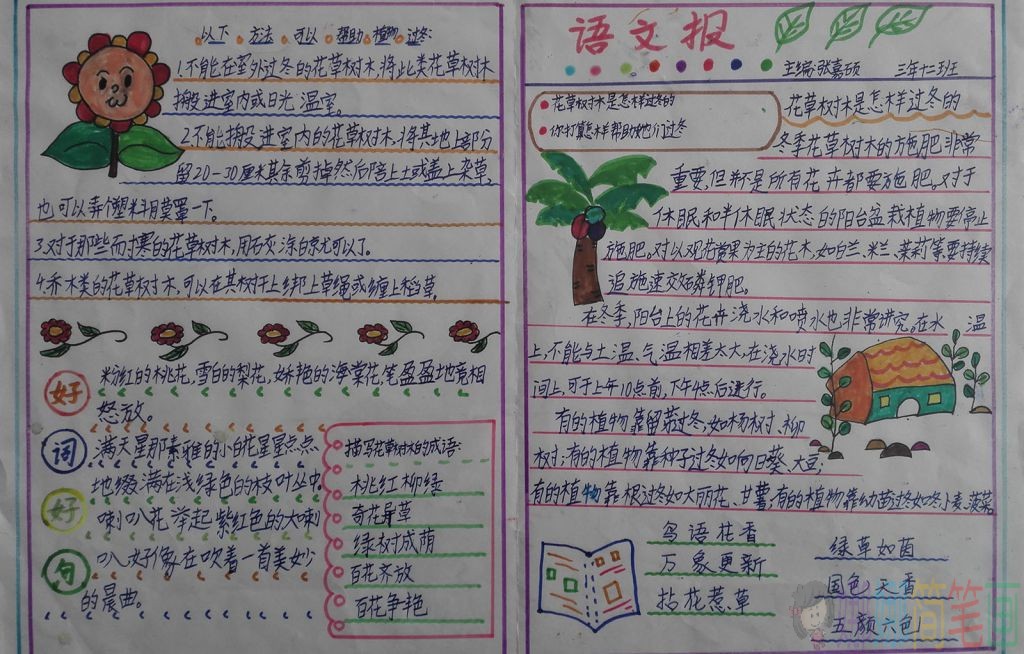 以下方法可以帮助植物过冬:
1.不能在室外过冬的花草树木,将此类花草树木
搬进室内或日光温室。
2.不能搬进室内的花草树木,将其地上部分
留20-30厘米其余剪掉然后陪上土或盖上杂草,
也可以弄个塑料膜罩一下。
3.对于那些而寸寒的花草树木,用石灰涂白就可以了。
4.乔木类的花草树木,可以在其树干上绑上草绳或缠上稻草。
好
词
好
句
粉红的桃花,雪白的梨花,娇艳的海棠花,笔盈盈地竟相
怒放。
满天星那素雅的小白花星星点点
地缀满在浅绿色的枝叶丛中
喇叭花举起紫红色的大喇
叭,好像在吹着一首美妙
的晨曲。
描写花草树木的成语:
桃红柳绿
奇花异草
绿树成荫
百花齐放
百花争艳
语文报
主编:张嘉硕 三年十二班
花草树木是怎样过冬的
你打算怎样帮助她们过冬
花草树木是怎样过冬的
冬季花草树木的施肥非常
重要,但并不是所有花卉都要施肥。对于
休眠和半休眠状态的阳台盆栽植物要停止
施肥。对以观花赏果为主的花木,如白兰、米兰、茉莉等,要持续
追施速效磷钾肥。
在冬季,阳台上的花卉浇水和喷水也非常讲究。在水温
上,不能与土温、气温相差太大,在浇水时
间上,可于上午10点前,下午4点后进行。
有的植物靠留茎过冬,如杨树、柳
树;有的植物靠种子过冬如向日葵、大豆;
有的植物靠根过冬如大丽花、甘薯;有的植物靠幼苗过冬如冬小麦,菠菜
鸟语花香
万象更新
拈花惹草
绿草如茵
国色天香
五颜六色
简笔画